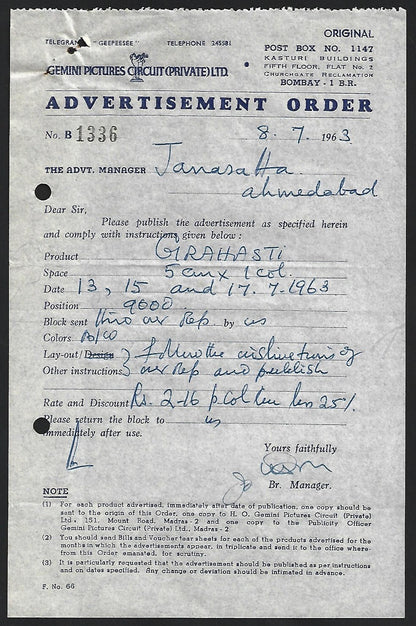 ORIGINAL
TELEGRAM "GEEPESEE" TELEPHONE 245581
POST BOX NO. 1147
KASTURI BUILDINGS
GEMINI PICTURES CIRCUIT (PRIVATE) LTD.
FIFTH FLOOR, FLAT No. 2
CHURCHGATE RECLAMATION
BOMBAY - 1 B.R.
ADVERTISEMENT ORDER
No. B 1336 8. 7. 1963
THE ADVT. MANAGER Janasatta
ahmedabad
Dear Sir,
Please publish the advertisement as specified herein
and comply with instructions given below :
Product GRAHASTI
Space 5 cm x 1 col.
Date 13, 15 and 17. 7. 1963
Position good
Block sent thro our Rep. by us
Colors B/W
Lay-out/Design } follow the instructions of
Other instructions } our Rep and publish
Rate and Discount Rs. 2-16 p col cm less 25%
Please return the block to us
immediately after use.
Yours faithfully
Br. Manager.
NOTE
(1) For each product advertised, immediately after date of publication, one copy should be
sent to the origin of this Order, one copy to H. O. Gemini Pictures Circuit (Private)
Ltd., 151, Mount Road, Madras - 2 and one copy to the Publicity Officer
Gemini Pictures Circuit (Private) Ltd., Madras - 2
(2) You should send Bills and Voucher tear sheets for each of the products advertised for the
months in which the advertisements appear, in triplicate and send it to the office where-
from this Order emanated, for scrutiny.
(3) It is particularly requested that the advertisement should be published as per instructions
and on dates specified. Any change or deviation should be intimated in advance.
F. No. 66